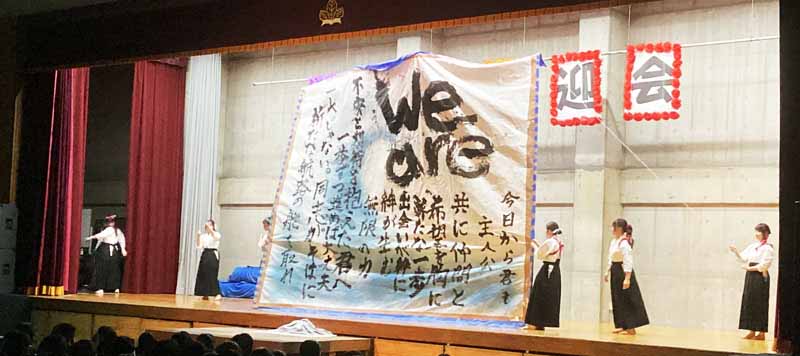 We
are
今日から君も
主人公
共に仲間と
希望を胸に
新たな一歩
出会いが絆に
絆が生む
無限の力
不安と期待を抱えた君へ
一歩ずつ進めば大丈夫
一人じゃない。同志がそばに
新たな航路の舵を取れ
迎会